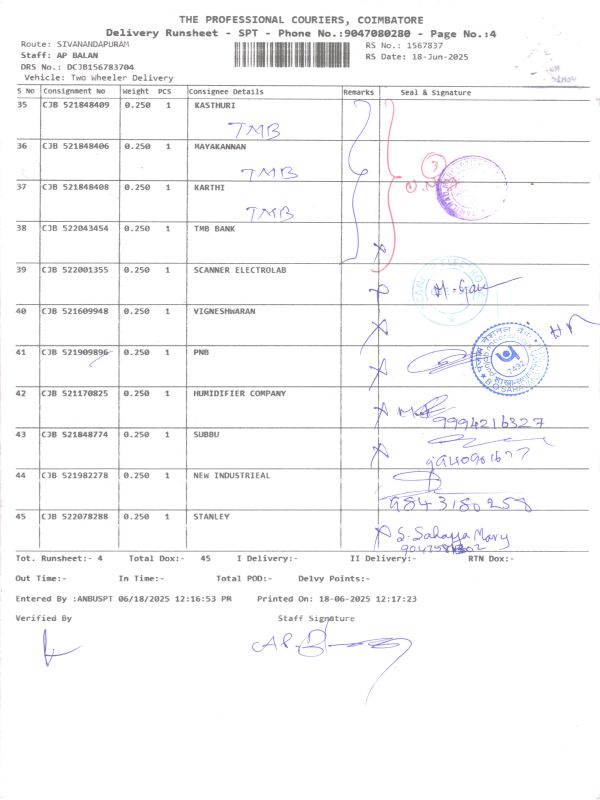 THE PROFESSIONAL COURIERS, COIMBATORE
Delivery Runsheet - SPT - Phone No.:9047080280 - Page No.:4
Route: SIVANANDAPURAM RS No.: 1567837
Staff: AP BALAN RS Date: 18-Jun-2025
DRS No.: DCJB156783704
Vehicle: Two Wheeler Delivery
S No Consignment No Weight PCS Consignee Details Remarks Seal & Signature
35 CJB 521848409 0.250 1 KASTHURI
TMB
36 CJB 521848406 0.250 1 MAYAKANNAN
TMB
3
37 CJB 521848408 0.250 1 KARTHI
TMB
38 CJB 522043454 0.250 1 TMB BANK
39 CJB 522001355 0.250 1 SCANNER ELECTROLAB
40 CJB 521609948 0.250 1 VIGNESHWARAN
41 CJB 521909896 0.250 1 PNB
42 CJB 521170825 0.250 1 HUMIDIFIER COMPANY
9994216327
43 CJB 521848774 0.250 1 SUBBU
44 CJB 521982278 0.250 1 NEW INDUSTRIEAL
9843180258
45 CJB 522078288 0.250 1 STANLEY
S. Sahaya Mary
Tot. Runsheet:- 4 Total Dox:- 45 I Delivery:- II Delivery:- RTN Dox:-
Out Time:- In Time:- Total POD:- Delvy Points:-
Entered By :ANBUSPT 06/18/2025 12:16:53 PM Printed On: 18-06-2025 12:17:23
Verified By Staff Signature